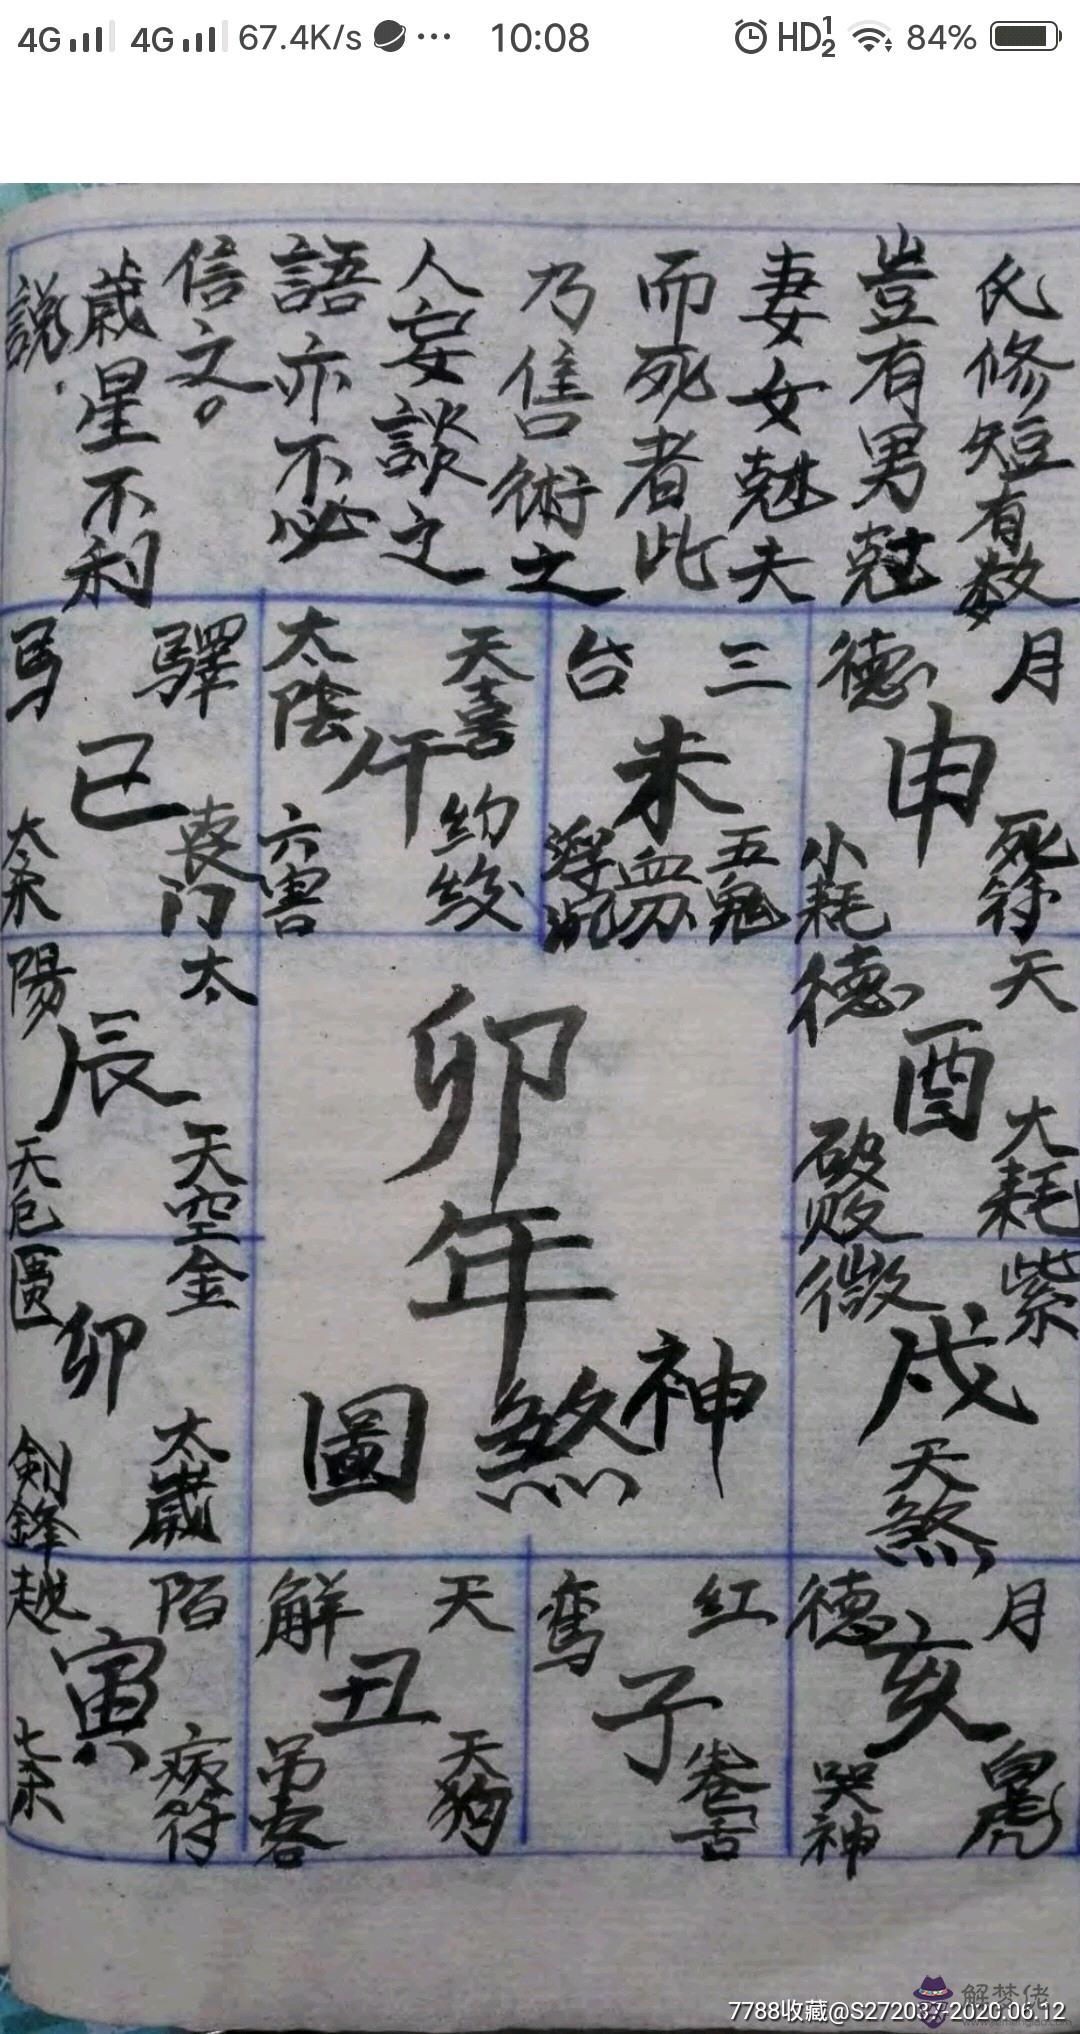 4G 4G 67.4K/s ··· 10:08 HD 1 2 84%
氏修短有数
豈有男尅
妻女尅夫
而死者此
乃售術之
人妄談之
語亦不必
信文。
歲星不利
說.
月德
申
死符
小耗
三台
未
五鬼
天喜
太陰
午
六害
驛馬
巳
喪门
天德
酉
大耗
太陽
辰
天空
紫微
戍
天煞
金匱
卯
太歲
劍鋒
卯年
神煞圖
月德
亥
白虎
哭神
红鸾
子
卷舌
天解
丑
天狗
吊客
陌越
寅
病符
解梦佬
7788收藏@S272037-2020.06.12